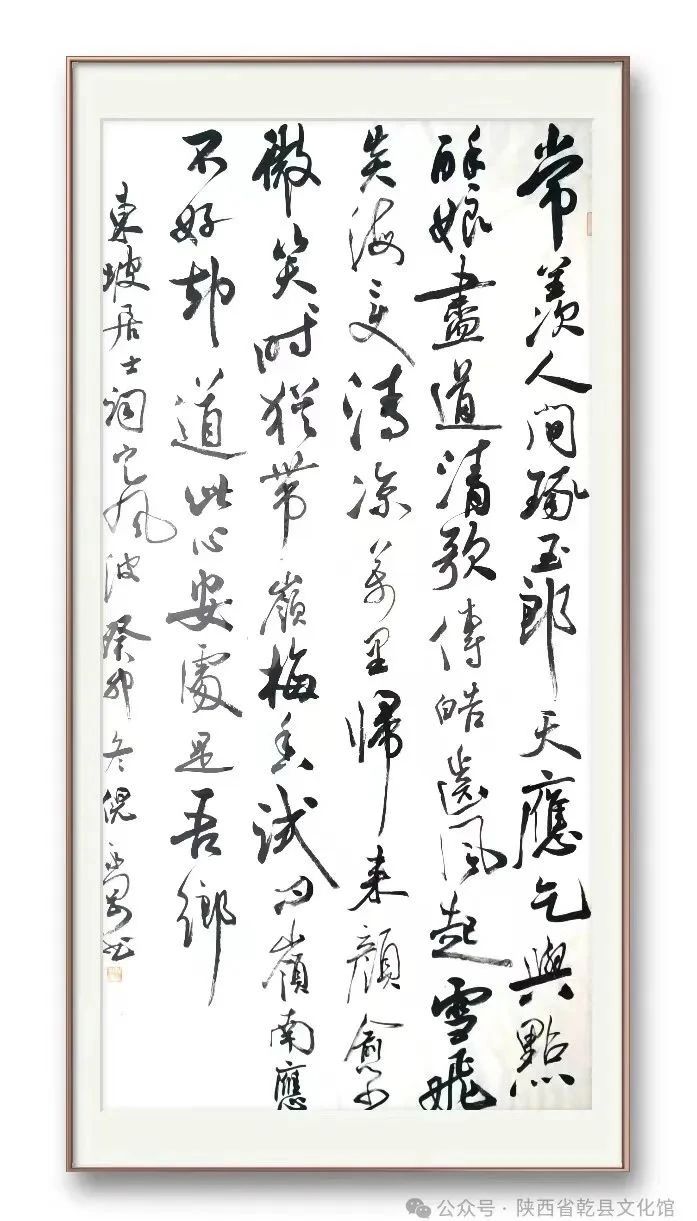 常羡人間琢玉郎天應乞與點
酥娘盡道清歌傳皓齒風起雪飛
炎海变清凉萬里歸来顏愈少
微笑时猶带嶺梅香試问嶺南應
不好却道此心安處是吾鄉
東坡居士词定风波癸卯冬倪书
公众号 · 陕西省乾县文化馆